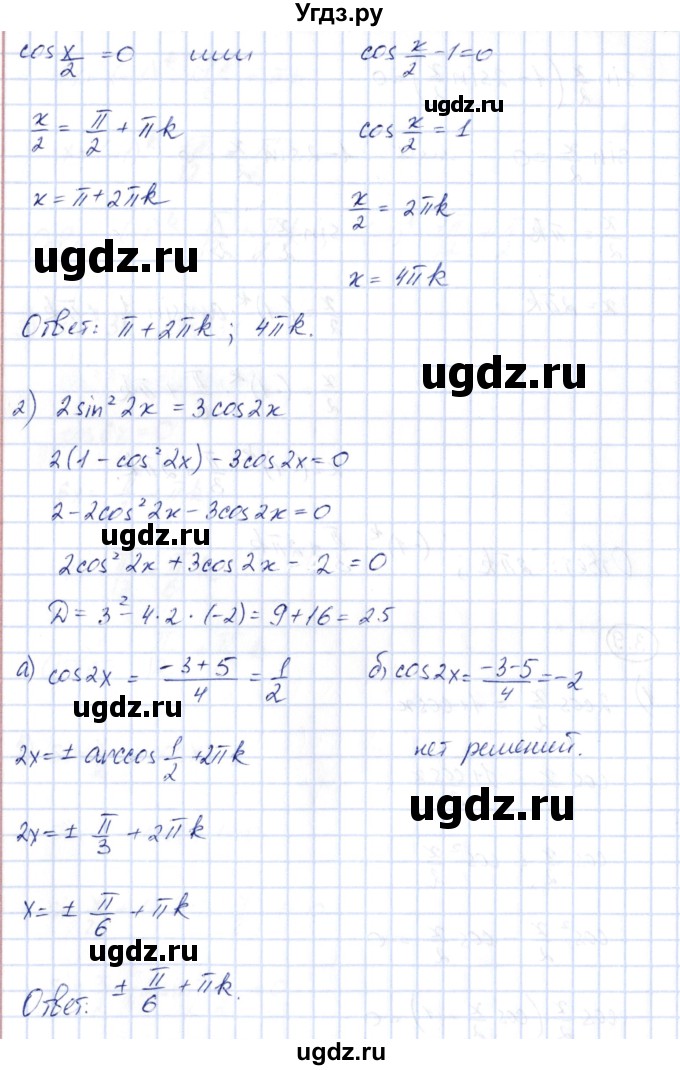 Угдз.ру
cos x/2 = 0 или cos x/2 - 1 = 0
ugdz.ru
x/2 = π/2 + πk cos x/2 = 1
x = π + 2πk x/2 = 2πk
ugdz.ru
x = 4πk
Ответ: π + 2πk; 4πk.
ugdz.ru
2) 2sin² 2x = 3cos2x
2(1 - cos² 2x) - 3cos2x = 0
2 - 2cos² 2x - 3cos2x = 0
ugdz.ru
2cos² 2x + 3cos2x - 2 = 0
D = 3² - 4·2·(-2) = 9 + 16 = 25
а) cos2x = (-3+5)/4 = 1/2 б) cos2x = (-3-5)/4 = -2
ugdz.ru
2x = ± arccos 1/2 + 2πk нет решений.
ugdz.ru
2x = ± π/3 + 2πk
x = ± π/6 + πk
ugdz.ru
Ответ: ± π/6 + πk.
ugdz.ru
ugdz.ru